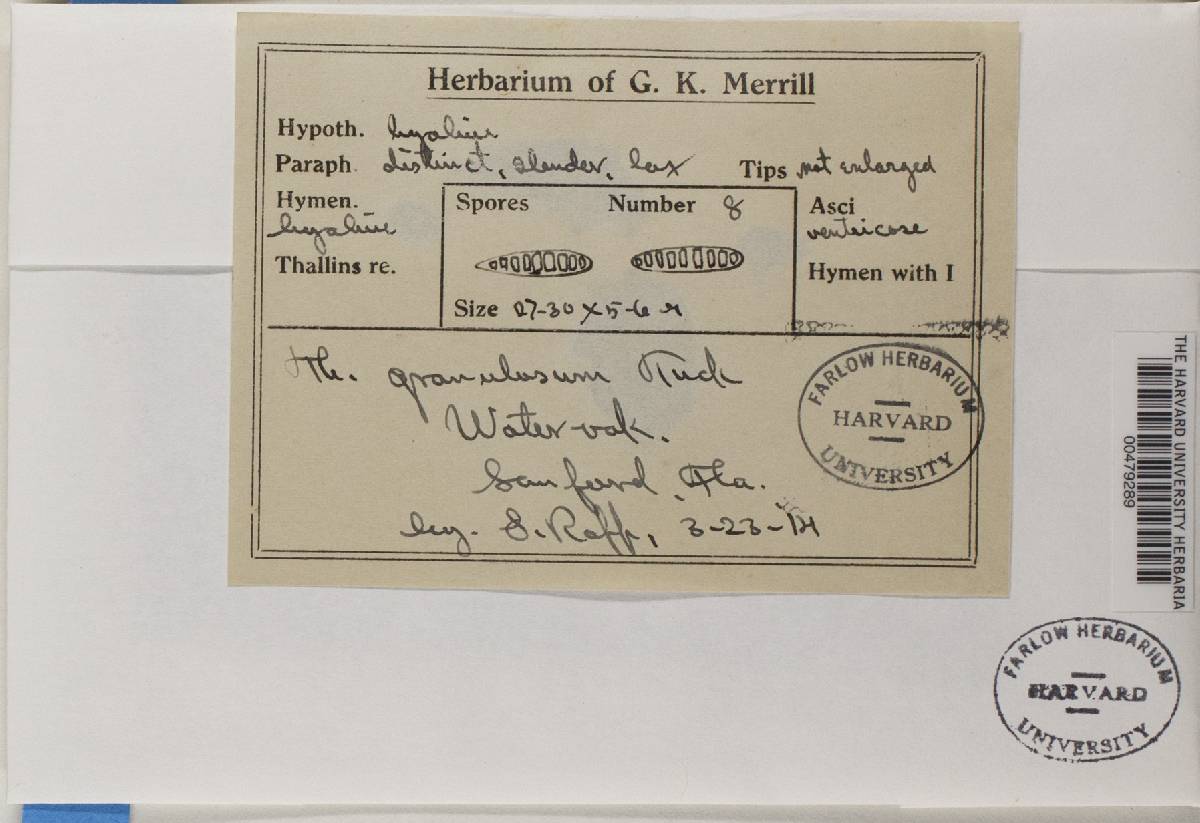 Herbarium of G. K. Merrill
Hypoth. hyaline
Paraph. distinct, slender, lax Tips not enlarged
Hymen. hyaline
Spores Number 8
Asci ventricose
Thallins re.
Hymen with I
Size 27-30 X 5-6 µ
Th. granulosum Tuck
Water-oak.
Sanford, Fla.
leg. S. Rapp, 3-23-14
FARLOW HERBARIUM
HARVARD
UNIVERSITY
THE HARVARD UNIVERSITY HERBARIA
00479289
FARLOW HERBARIUM
HARVARD
UNIVERSITY